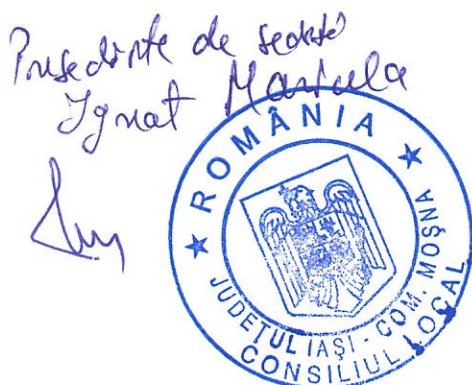 Președinte de ședință
Ignat Maricela
★ ROMÂNIA ★
JUDEȚUL IAȘI - COM. MOȘNA
CONSILIUL LOCAL